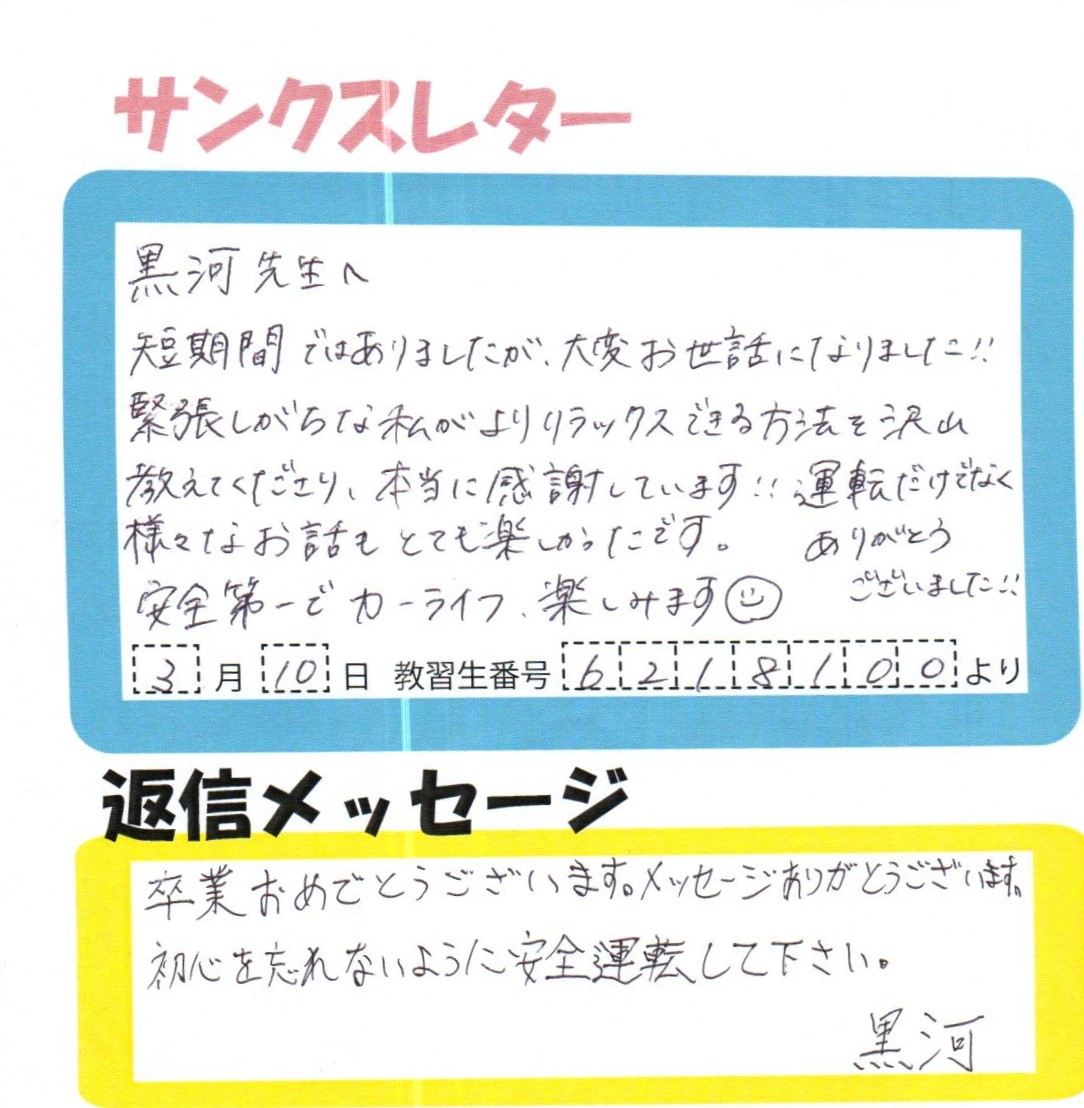 サンクスレター
黒河先生へ
短期間ではありましたが、大変お世話になりました!!
緊張しがちな私がよりリラックスできる方法を沢山
教えてくださり、本当に感謝しています!! 運転だけでなく
様々なお話もとても楽しかったです。 ありがとう
ございました!!
安全第一でカーライフ、楽しみます
3月10日 教習生番号 6218100より
返信メッセージ
卒業おめでとうございます。メッセージありがとうございます。
初心を忘れないように安全運転して下さい。
黒河